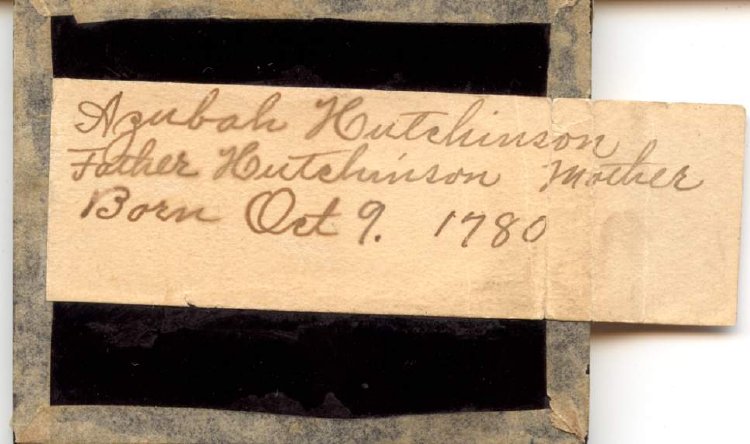 Azubah Hutchinson
Father Hutchinson Mother
Born Oct 9. 1780